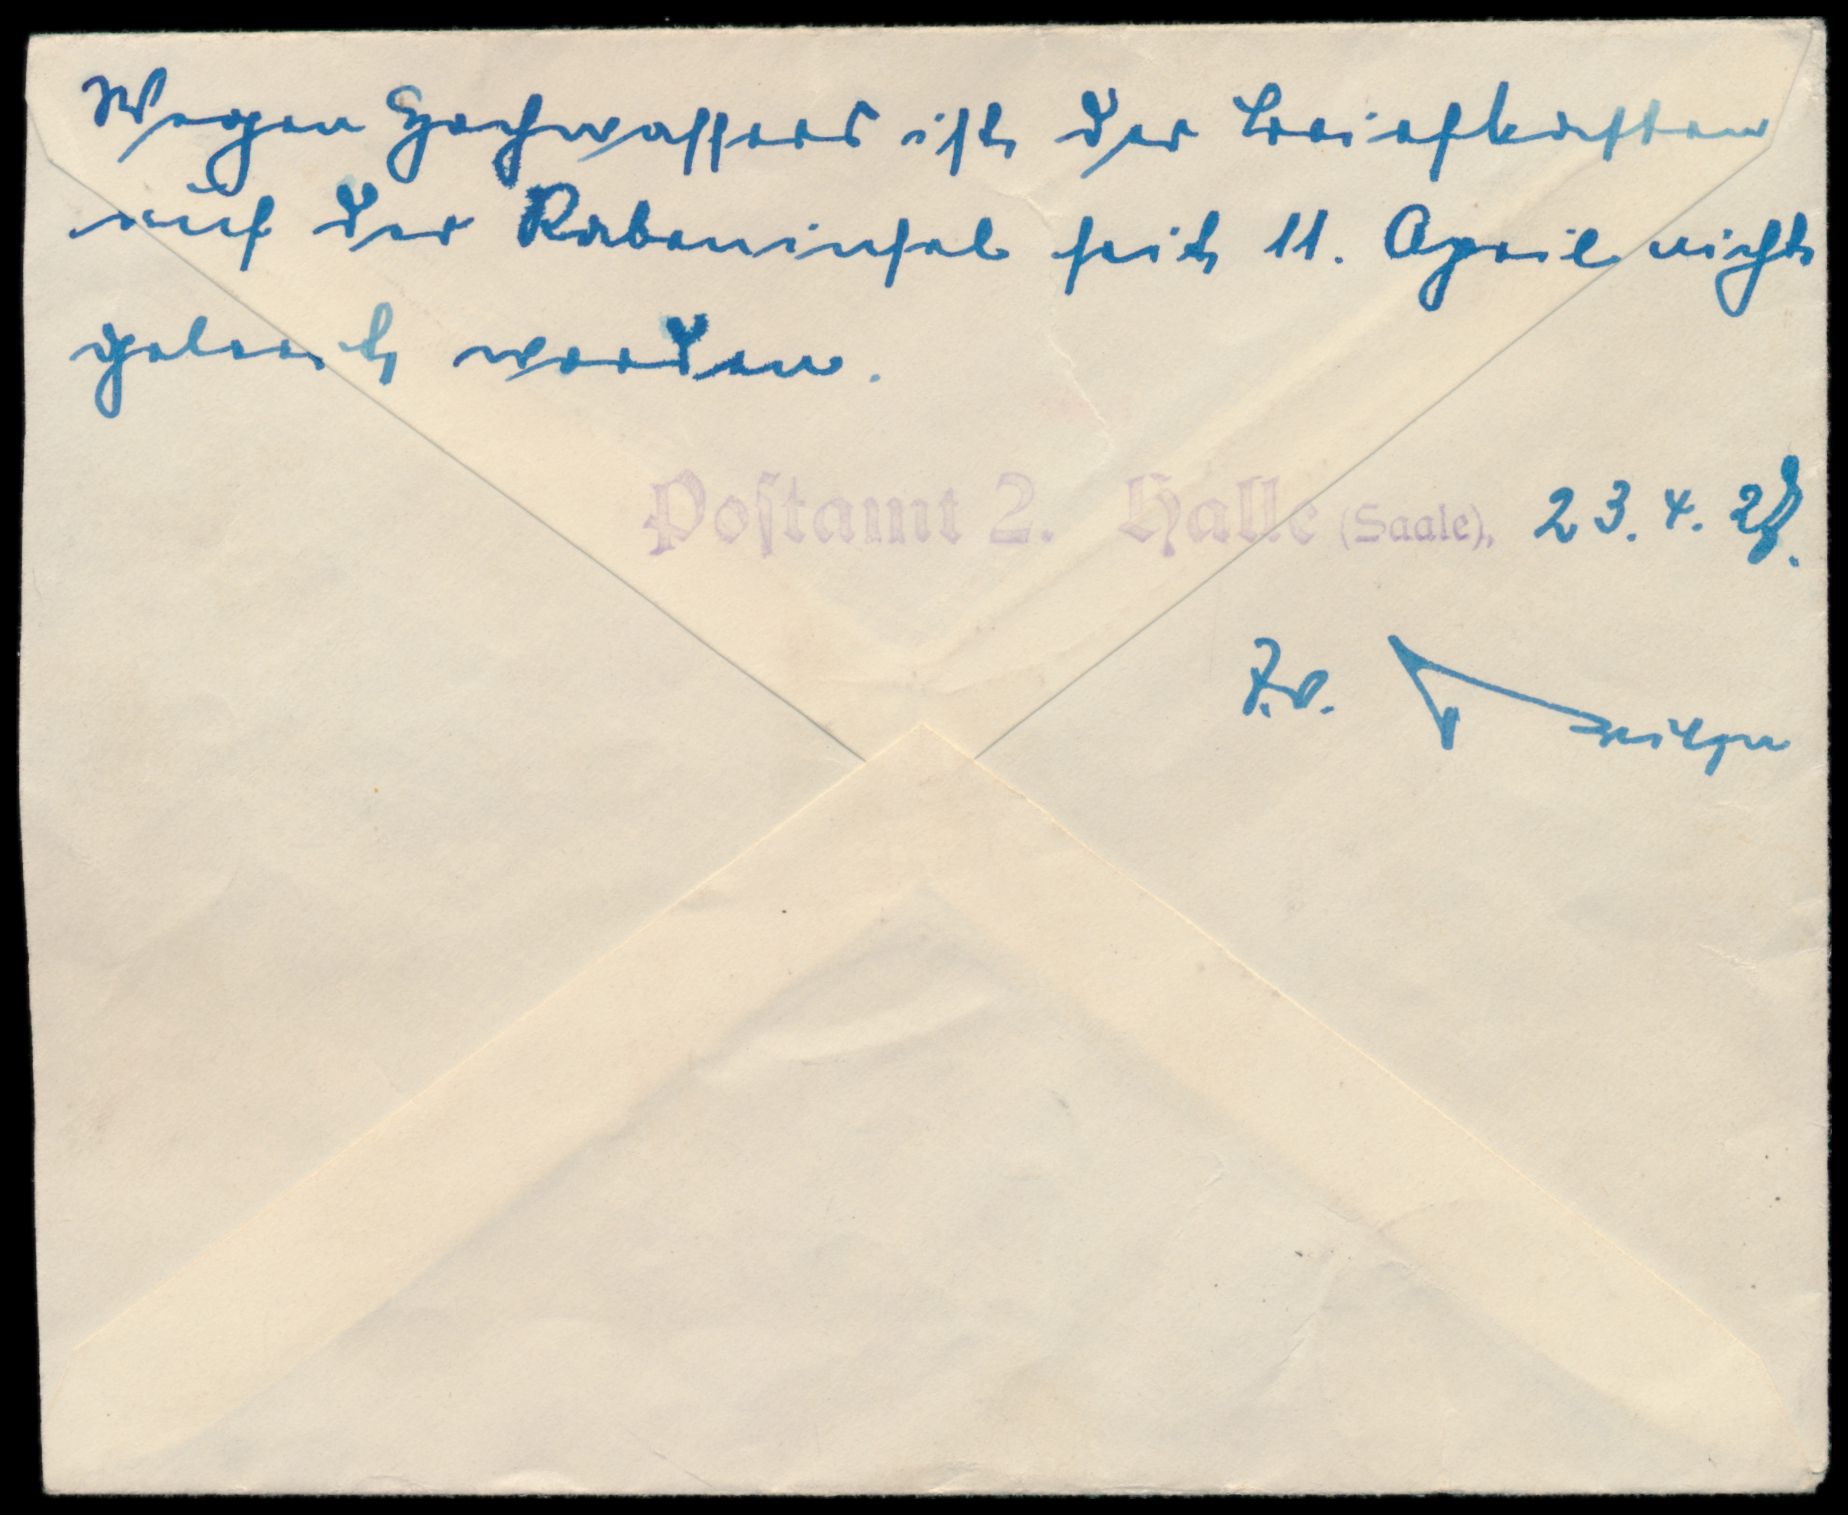 Wegen Hochwassers ist der Briefkasten
auf der Rabeninsel seit 11. April nicht
geleert worden.
Postamt 2. Halle (Saale), 23.4.